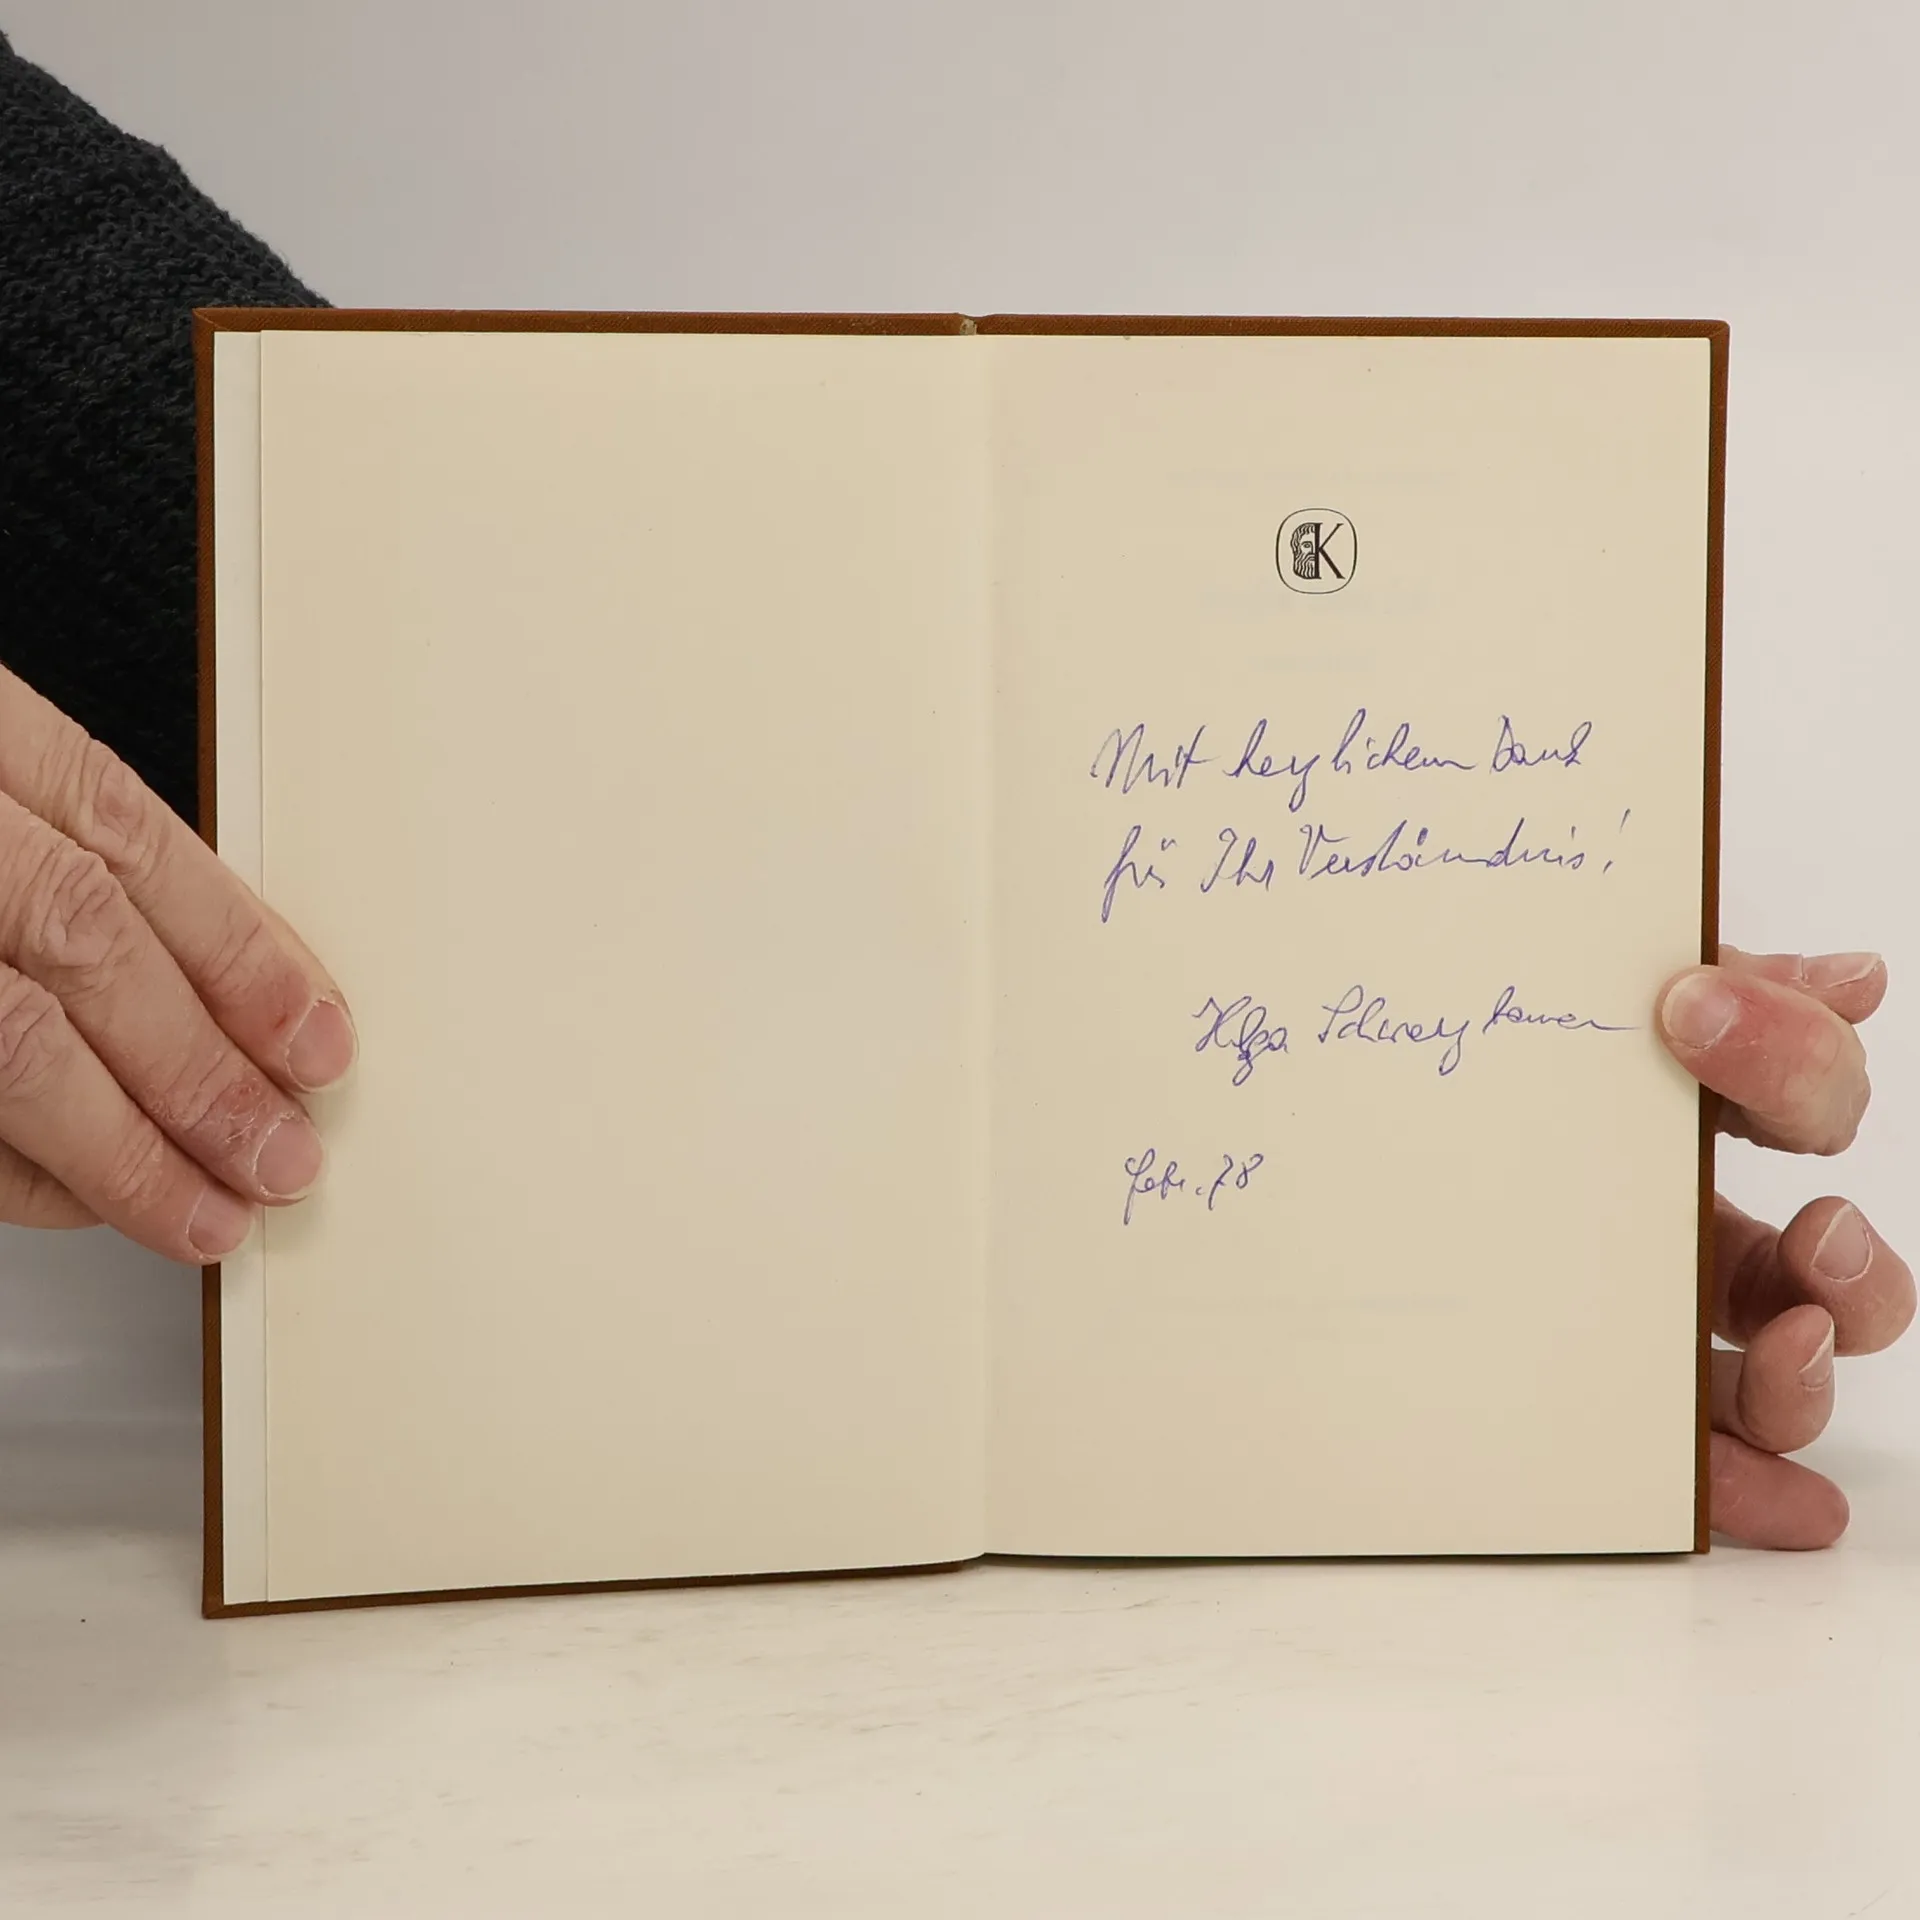 K
Mit herzlichem Dank
für Ihr Verständnis!
Helga
Febr. 78